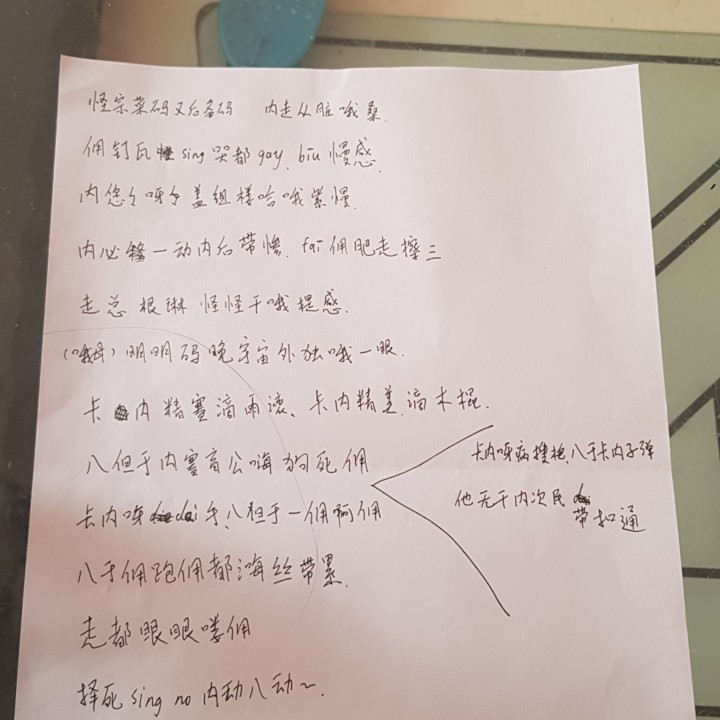 怪宗菜码又后备码 内走从脏哦桑.
佣钉瓦 sing 哭都 gay. biu 慢感.
内您 呀 盖组楼哈哦紫慢.
内必 一动内后带惨. fai 佣肥走擦三
走总根琳 怪怪干哦提感.
(哦母) 明明码晚宇宙外独哦一眼.
卡 内精赛滴雨 、卡内精美 滴木棍.
八但于内赛育公嗨狗死佣
卡内呀 手、八担于一佣啊佣
八于佣跑佣都海丝带累.
走都眼眼喽佣
择死 sing no 内动八动~
卡内呀病搜枪, 八于卡内子弹
他无干内次民 带扣通